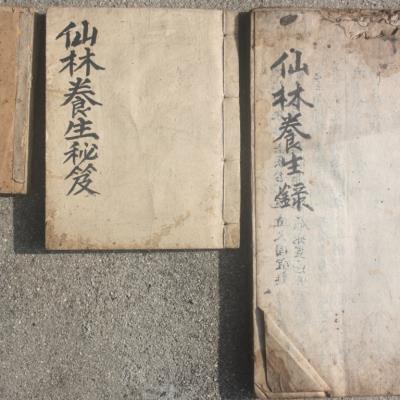 仙林養生秘笈
仙林養生錄